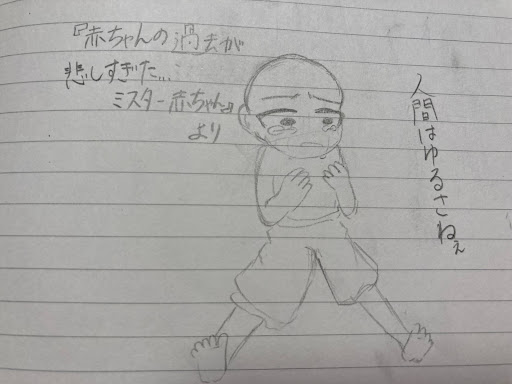 『赤ちゃんの過去が
悲しすぎた...
ミスター赤ちゃん』
より
人間はゆるさねぇ